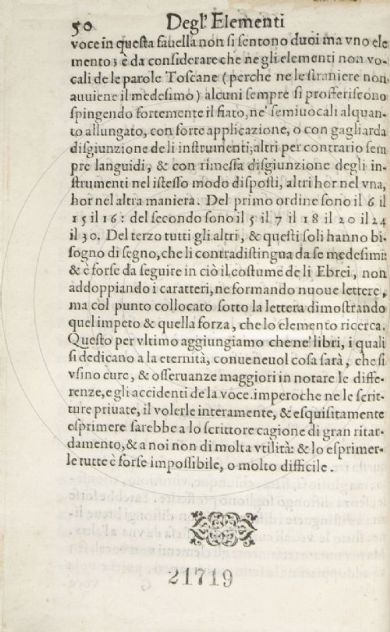 50 Degl' Elementi
voce in questa fauella non si sentono duoi ma vno ele
mento; è da considerare che ne gli elementi non vo-
cali de le parole Toscane (perche ne le straniere non
auuiene il medesimo) alcuni sempre si profferiscono
spingendo fortemente il fiato, ne' semiuocali alquan-
to allungato, con forte applicazione, o con gagliarda
disgiunzione de li instrumenti; altri per contrario sem
pre languidi, & con rimessa disgiunzione degli in-
strumenti nel istesso modo disposti, altri hor nel vna,
hor nel altra maniera. Del primo ordine sono il 6 il
15 il 16: del secondo sono il 5 il 7 il 18 il 20 il 24
il 30. Del terzo tutti gli altri, & questi soli hanno bi-
sogno di segno, che li contradistingua da se medesimi:
& è forse da seguire in ciò il costume de li Ebrei, non
addoppiando i caratteri, ne formando nuoue lettere,
ma col punto collocato sotto la lettera dimostrando
quel impeto & quella forza, che lo elemento ricerca.
Questo per vltimo aggiungiamo che ne' libri, i quali
si dedicano a la eternità, conueneuol cosa sarà, che si
vsino cure, & osseruanze maggiori in notare le diffe-
renze, e gli accidenti de la voce. imperoche ne le scrit-
ture priuate, il volerle interamente, & esquisitamente
esprimere sarebbe a lo scrittore cagione di gran ritar-
damento, & a noi non di molta vtilità: & lo esprimer-
le tutte è forse impossibile, o molto difficile.
21719